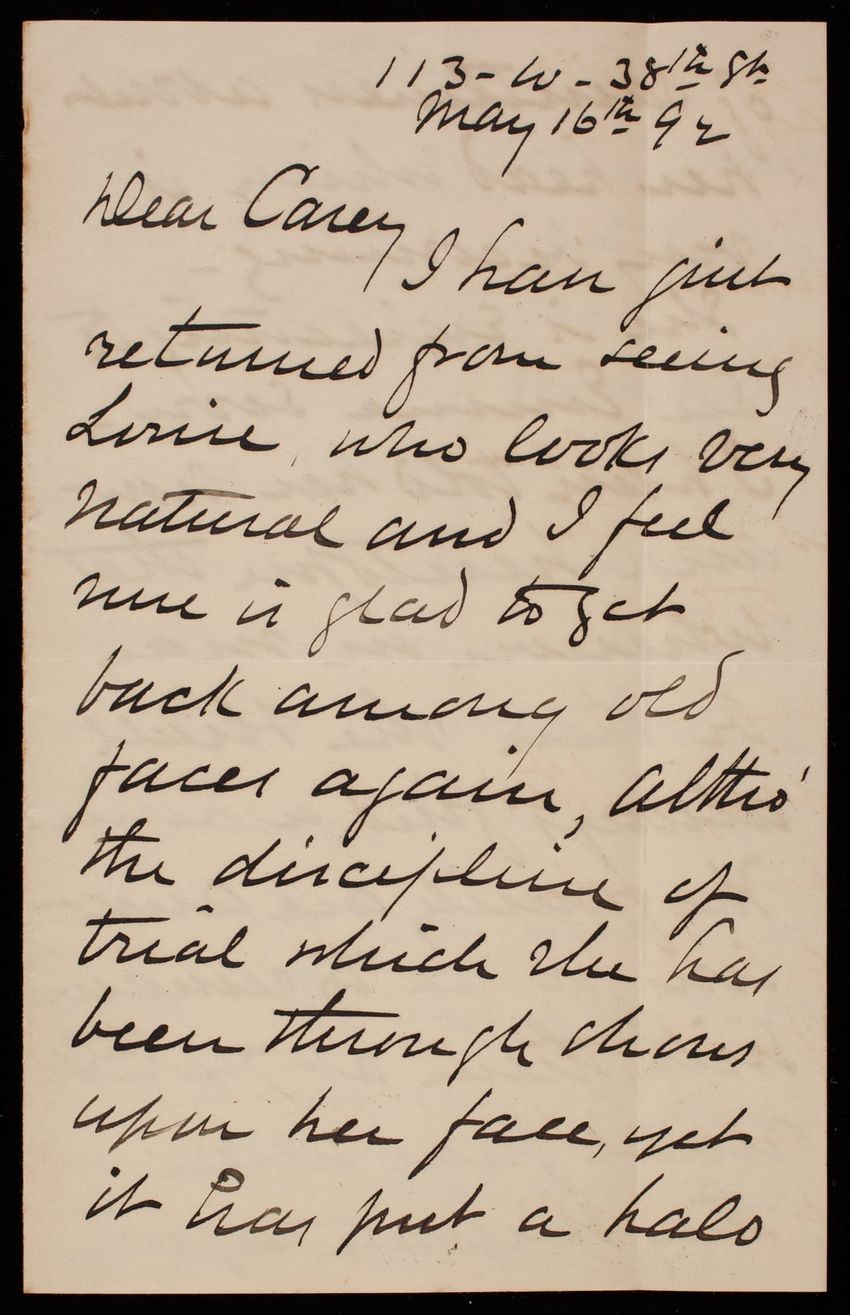 113 - W - 38th St
May 16th 92
Dear Casey
I have just
returned from seeing
Louise, who looks very
natural and I feel
sure is glad to get
back among old
faces again, altho'
the discipline of
trial which she has
been through shows
upon her face, yet
it has put a halo